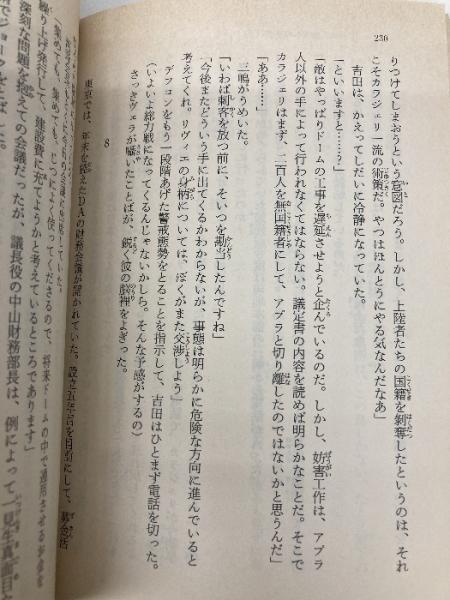 230
りつけてしまおうという意図だろう。しかし、上陸者たちの国籍を剝奪したというのは、それ
こそカラジェリ一流の術策だ。やつはほんとうにやる気なんだなあ」
吉田は、かえってしだいに冷静になっていた。
「といいますと……?」
「敵はやっぱりドームの工事を遅延させようと企んでいるのだ。しかし、妨害工作は、アプラ
人以外の手によって行われなくてはならない。議定書の内容を読めば明らかなことだ。そこで
カラジェリはまず、二百人を無国籍者にして、アプラと切り離したのではないかと思うんだ」
「ああ……」
三嶋がうめいた。
「いわば刺客を放つ前に、そいつを勘当したんですね」
「今後またどういう手に出てくるかわからないが、事態は明らかに危険な方向に進んでいると
考えてくれ。リヴィエの身柄については、ぼくがまた交渉しよう」
デフコンをもう一段階あげた警戒態勢をとることを指示して、吉田はひとまず電話を切った。
(いよいよ総力戦になってくるんじゃないかしら。そんな予感がするの)
さっきヴェラが囁いたことばが、鋭く彼の脳裡をよぎった。
8
東京では、年末を控えたDAの財務会議が開かれていた。設立五年目を目前にして、募金活
「集めも、集めも、じつによく使ってくださるので、将来ドームの中で通用させるお金を
繰り上げ発行して、建設費に充てようかと考えているところであります」
深刻な問題を抱えての会議だったが、議長役の中山財務部長は、例によって一見生真面目な